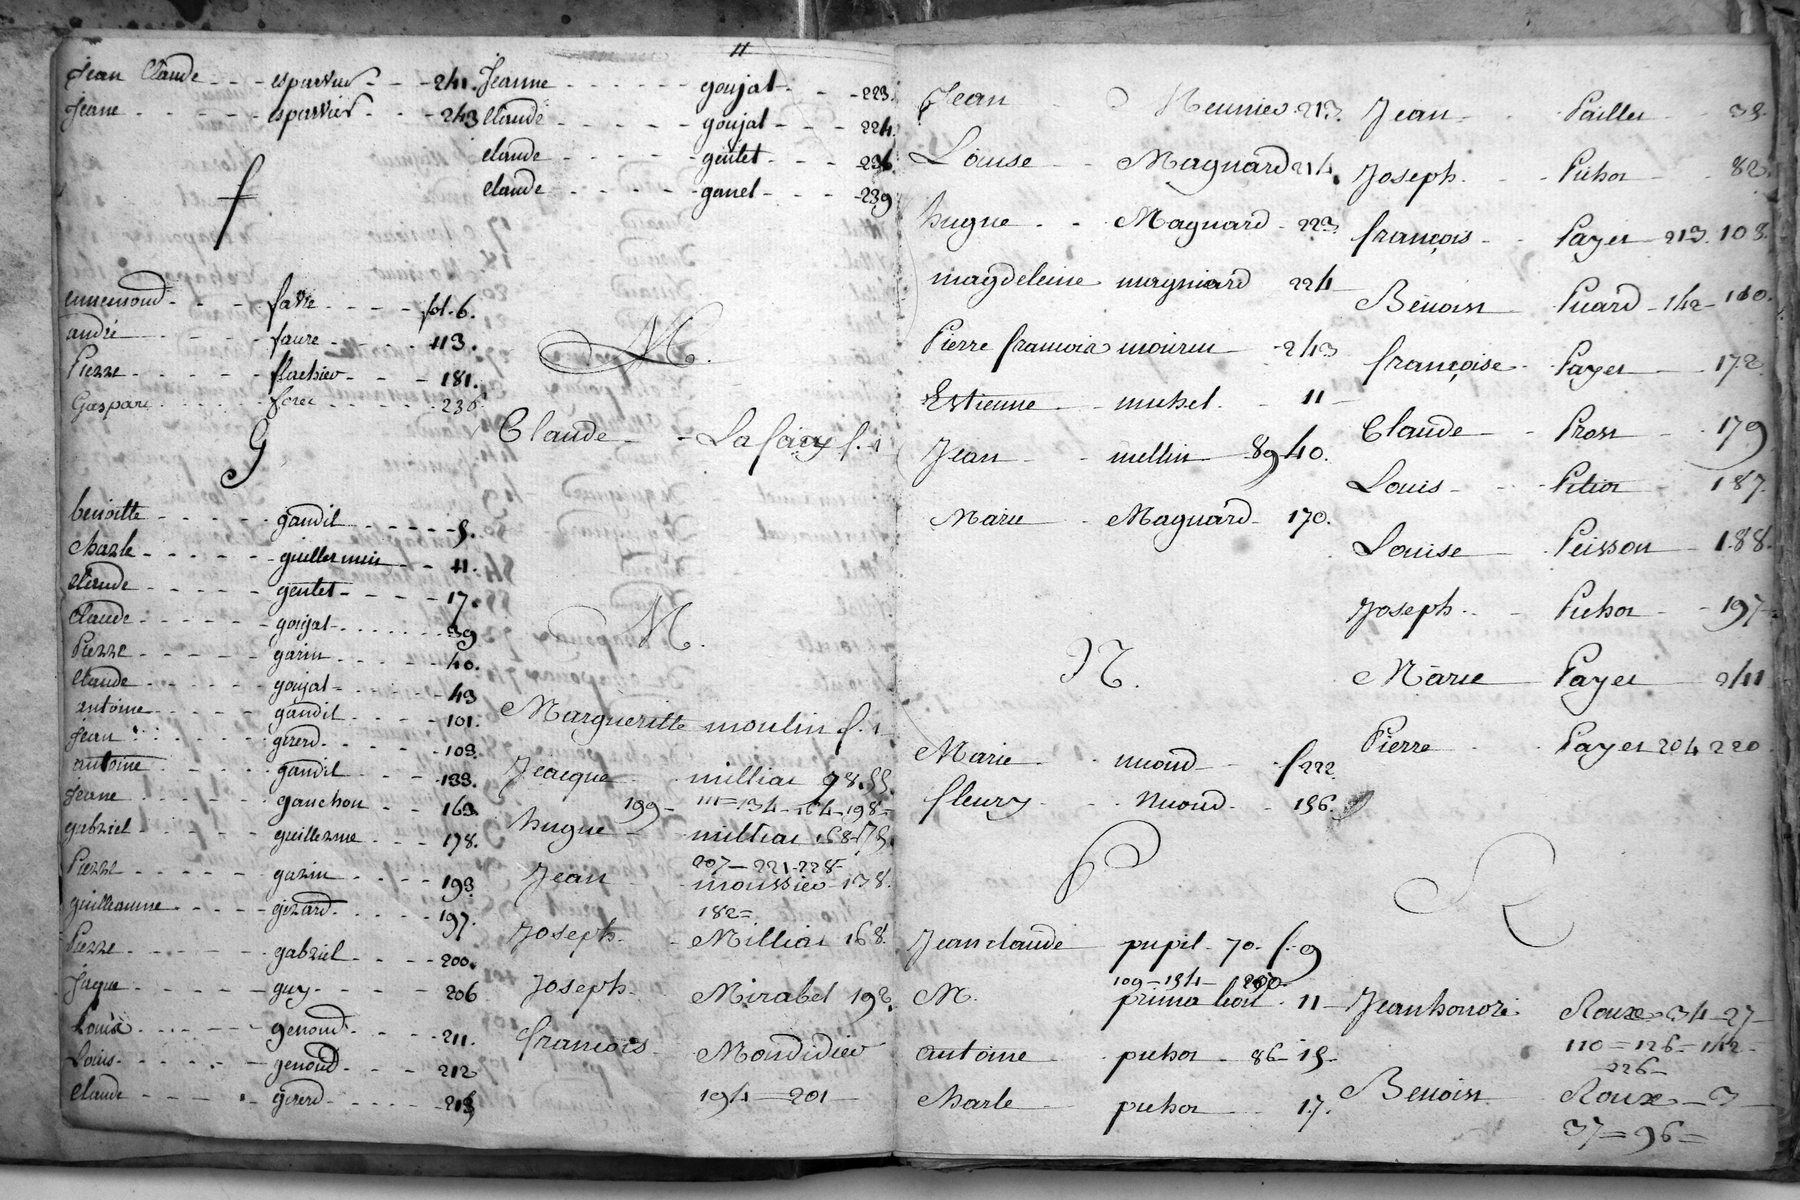 Jean Claude - - - esparvier - - - 241.
Jeane - - - - - esparvier - - - 243
f
ennemond - - - - favre - - - - fol. 6.
andré - - - - - faure - - - - 113.
Pierre - - - - - flachier - - - 181.
Gaspard - - - - - forec - - - - 236
G
benoitte - - - - - gandil - - - - - 9.
charle - - - - - guillermin - - 11.
claude - - - - - gentet - - - - 17.
claude - - - - - goujat - - - - - 39
Pierre - - - - - garin - - - - - 40.
claude - - - - - goujat - - - - 43
antoine - - - - - gandil - - - - 101.
Jean - - - - - girerd - - - - 103.
antoine - - - - - gandil - - - - 133.
Jeane - - - - - ganchon - - - 163.
gabriel - - - - - guillerme - - - 178.
Pierre - - - - - garin - - - - 193.
guilleaume - - - - girard - - - - 197.
Pierre - - - - - gabriel - - - - 200.
Jaque - - - - - guy - - - - - 206
Louis - - - - - genoud - - - - 211.
Louis - - - - - genoud - - - - 212
Claude - - - - - girerd - - - - 213
11
Jeanne - - - - - goujat - - - 223.
claude - - - - - goujat - - - 224.
claude - - - - - gentet - - - 236
claude - - - - - ganel - - - 239
M.
Claude - - Lafay f. 1
M.
Margueritte moulin f. 1
Jeacque milliat 78. 55.
199 - 111 = 134 - 164 - 198 =
hugue milliat 168 - 178.
207 - 221 - 228 -
Jean moussier - 138.
182 =
Joseph - Milliat 168.
Joseph - Mirabel 192.
francois Mondidier
194 - 201 -
Jean Meunier 213.
Louise - - Magnard 214.
hugue - - Magnard - 223.
magdeleine magniard 224
Pierre francois mourin 243
Estienne - - michel - 11 -
Jean - mellin 89 40.
Marie - Magnard - 170.
N.
Marie - nuoud - - f 222.
fleury - - nuoud - - 156.
P
Jean claude pupil - 70. f. 9
109 - 154 - 200 -
M. prima 11 -
antoine pichot - 86 - 15 -
charle - pichot - - 17.
Jean - Paillet - 35.
Joseph - - Pichot - 82.
françois - - Payet - 213. 103.
Benoist Picard - 142 - 160.
françoise - Payet - 172
Claude - Pron - - 179
Louis - - Pitiot - 187.
Louise - Peisson - 188.
Joseph - - Pichot - - 197 -
Marie - Payet 241
Pierre - Payet 204 220.
R
Jean honoré Roux - 34 - 27 -
110 = 126 - 142 -
226 -
Benoist Roux - 3 -
37 = 96 =